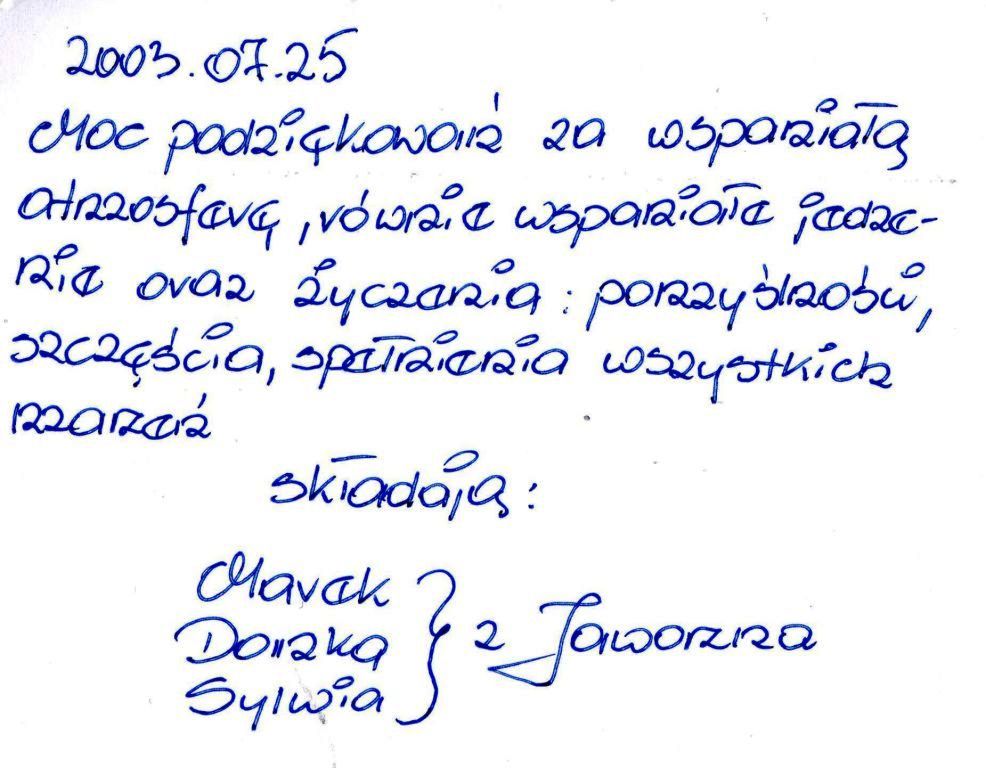 2003.07.25
Moc podziękowań za wspaniałą
atmosferę, równie wspaniałe jedze-
nie oraz życzenia: pomyślności,
szczęścia, spełnienia wszystkich
marzeń
składają:
Marek
Danka } z Jaworzna
Sylwia